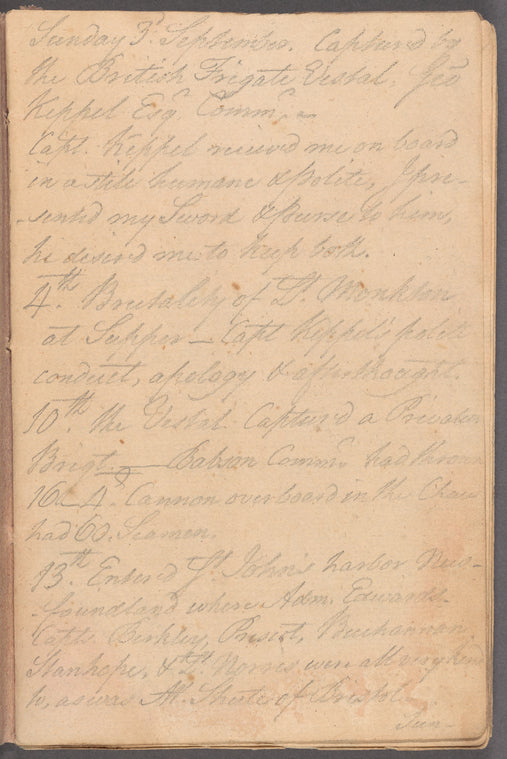 Sunday 3d. September. Captured by
the British Frigate Vestal. Geo
Keppel Esqr. Commr.
Capt. Keppel received me on board
in a stile humane & polite, I pre-
-sented my Sword & purse to him,
he desired me to keep both.
4th. Brutality of Lt. Monkton
at Supper — Capt Keppel's polite
conduct, apology & afterthought.
10th. the Vestal Captur'd a Privateer
Brigt. — Babson Commr. had thrown
16. 4. Cannon overboard in the Chace
had 60. Seamen.
13th. Enterd St. John's harbor New-
-foundland where Adm. Edwards-
Capts. Berkley, Presct, Buchannon
Stanhope, & Lt. Norris were all very kind
to, as was Mr. Shute of Bristol.
Sun-